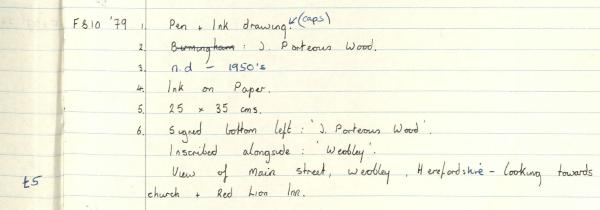 F810 '79 1. Pen + Ink drawing. (caps)
2. Burningham : J. Porteous Wood.
3. n.d - 1950's
4. Ink on Paper.
5. 25 × 35 cms.
6. Signed bottom left : 'J. Porteous Wood'.
Inscribed alongside : 'Weobley'.
View of main street, weobley, Herefordshire - looking towards
£5 church + Red Lion Inn.